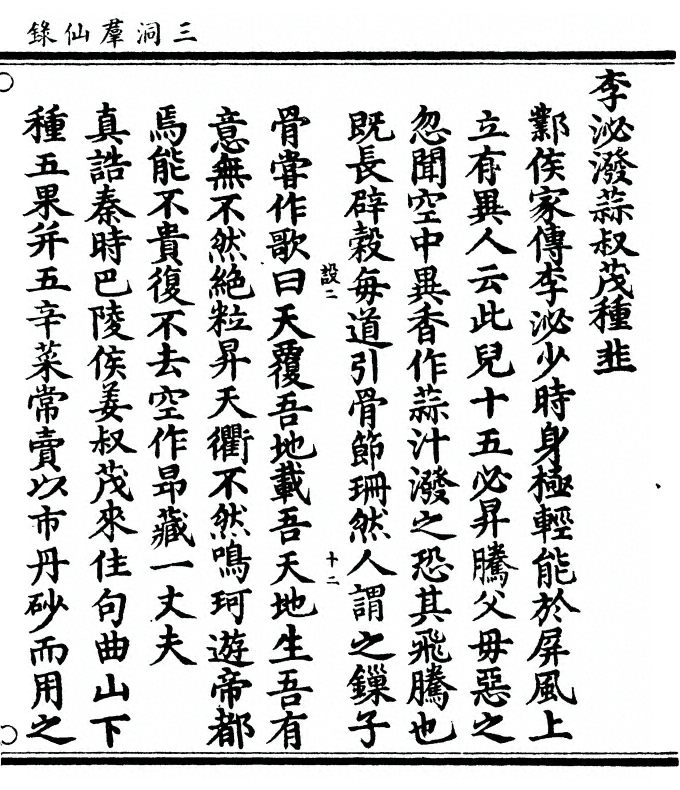 三洞羣仙錄
李泌潑蒜叔茂種韭
鄴侯家傳李泌少時身極輕能於屏風上
立有異人云此兒十五必昇騰父母惡之
忽聞空中異香作蒜汁潑之恐其飛騰也
既長辟穀每道引骨節珊然人謂之鏁子
設二 十二
骨嘗作歌曰天覆吾地載吾天地生吾有
意無不然絶粒昇天衢不然鳴珂遊帝都
焉能不貴復不去空作昂藏一丈夫
真誥秦時巴陵侯姜叔茂來住句曲山下
種五果并五辛菜常賣以市丹砂而用之